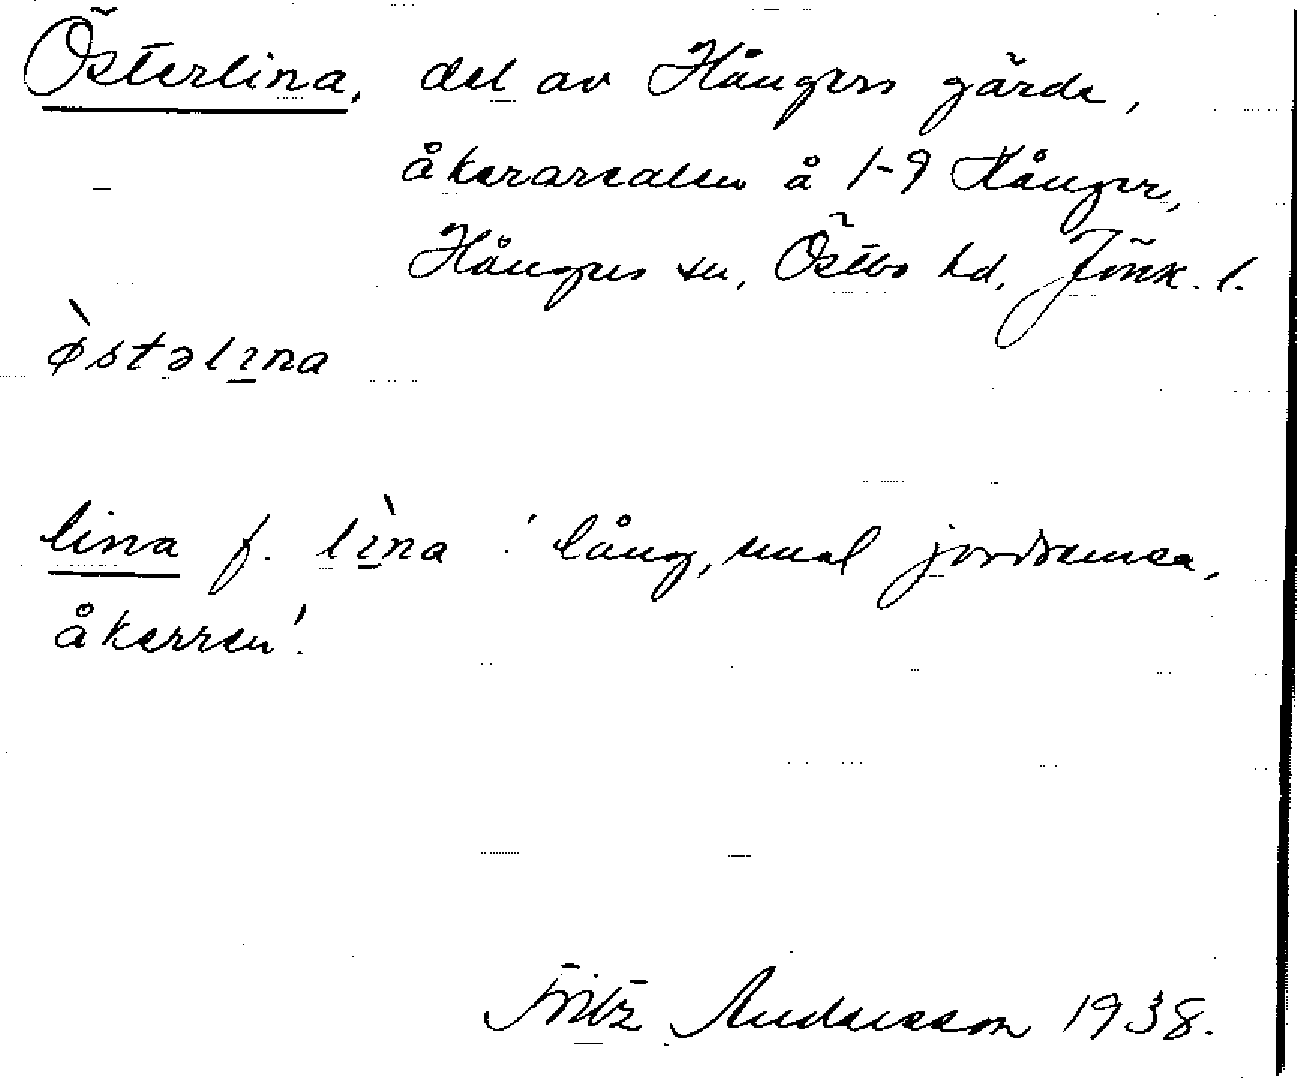 Österlina, del av Hångers gärde,
åkerarealen å 1-9 Hånger,
Hångers sn, Östbo hd, Jönk. l.
ø̀stəlına
lina f. lı̀na 'lång, smal jordremsa,
åkerren'.
Fritz Andersson 1938.